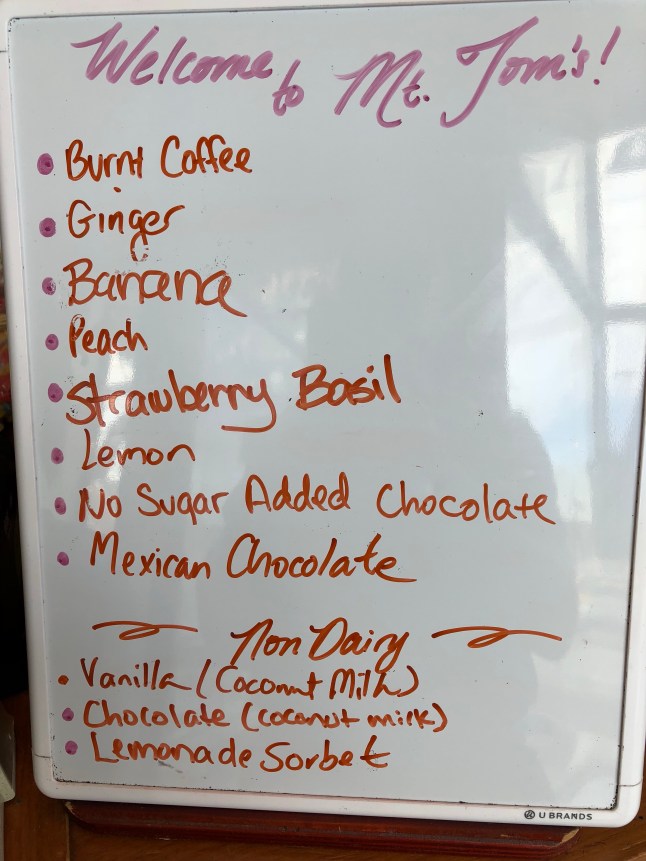 Welcome to Mt. Tom's!
• Burnt Coffee
• Ginger
• Banana
• Peach
• Strawberry Basil
• Lemon
• No Sugar Added Chocolate
• Mexican Chocolate
Non Dairy
• Vanilla (Coconut Milk)
• Chocolate (coconut milk)
• Lemonade Sorbet
U BRANDS